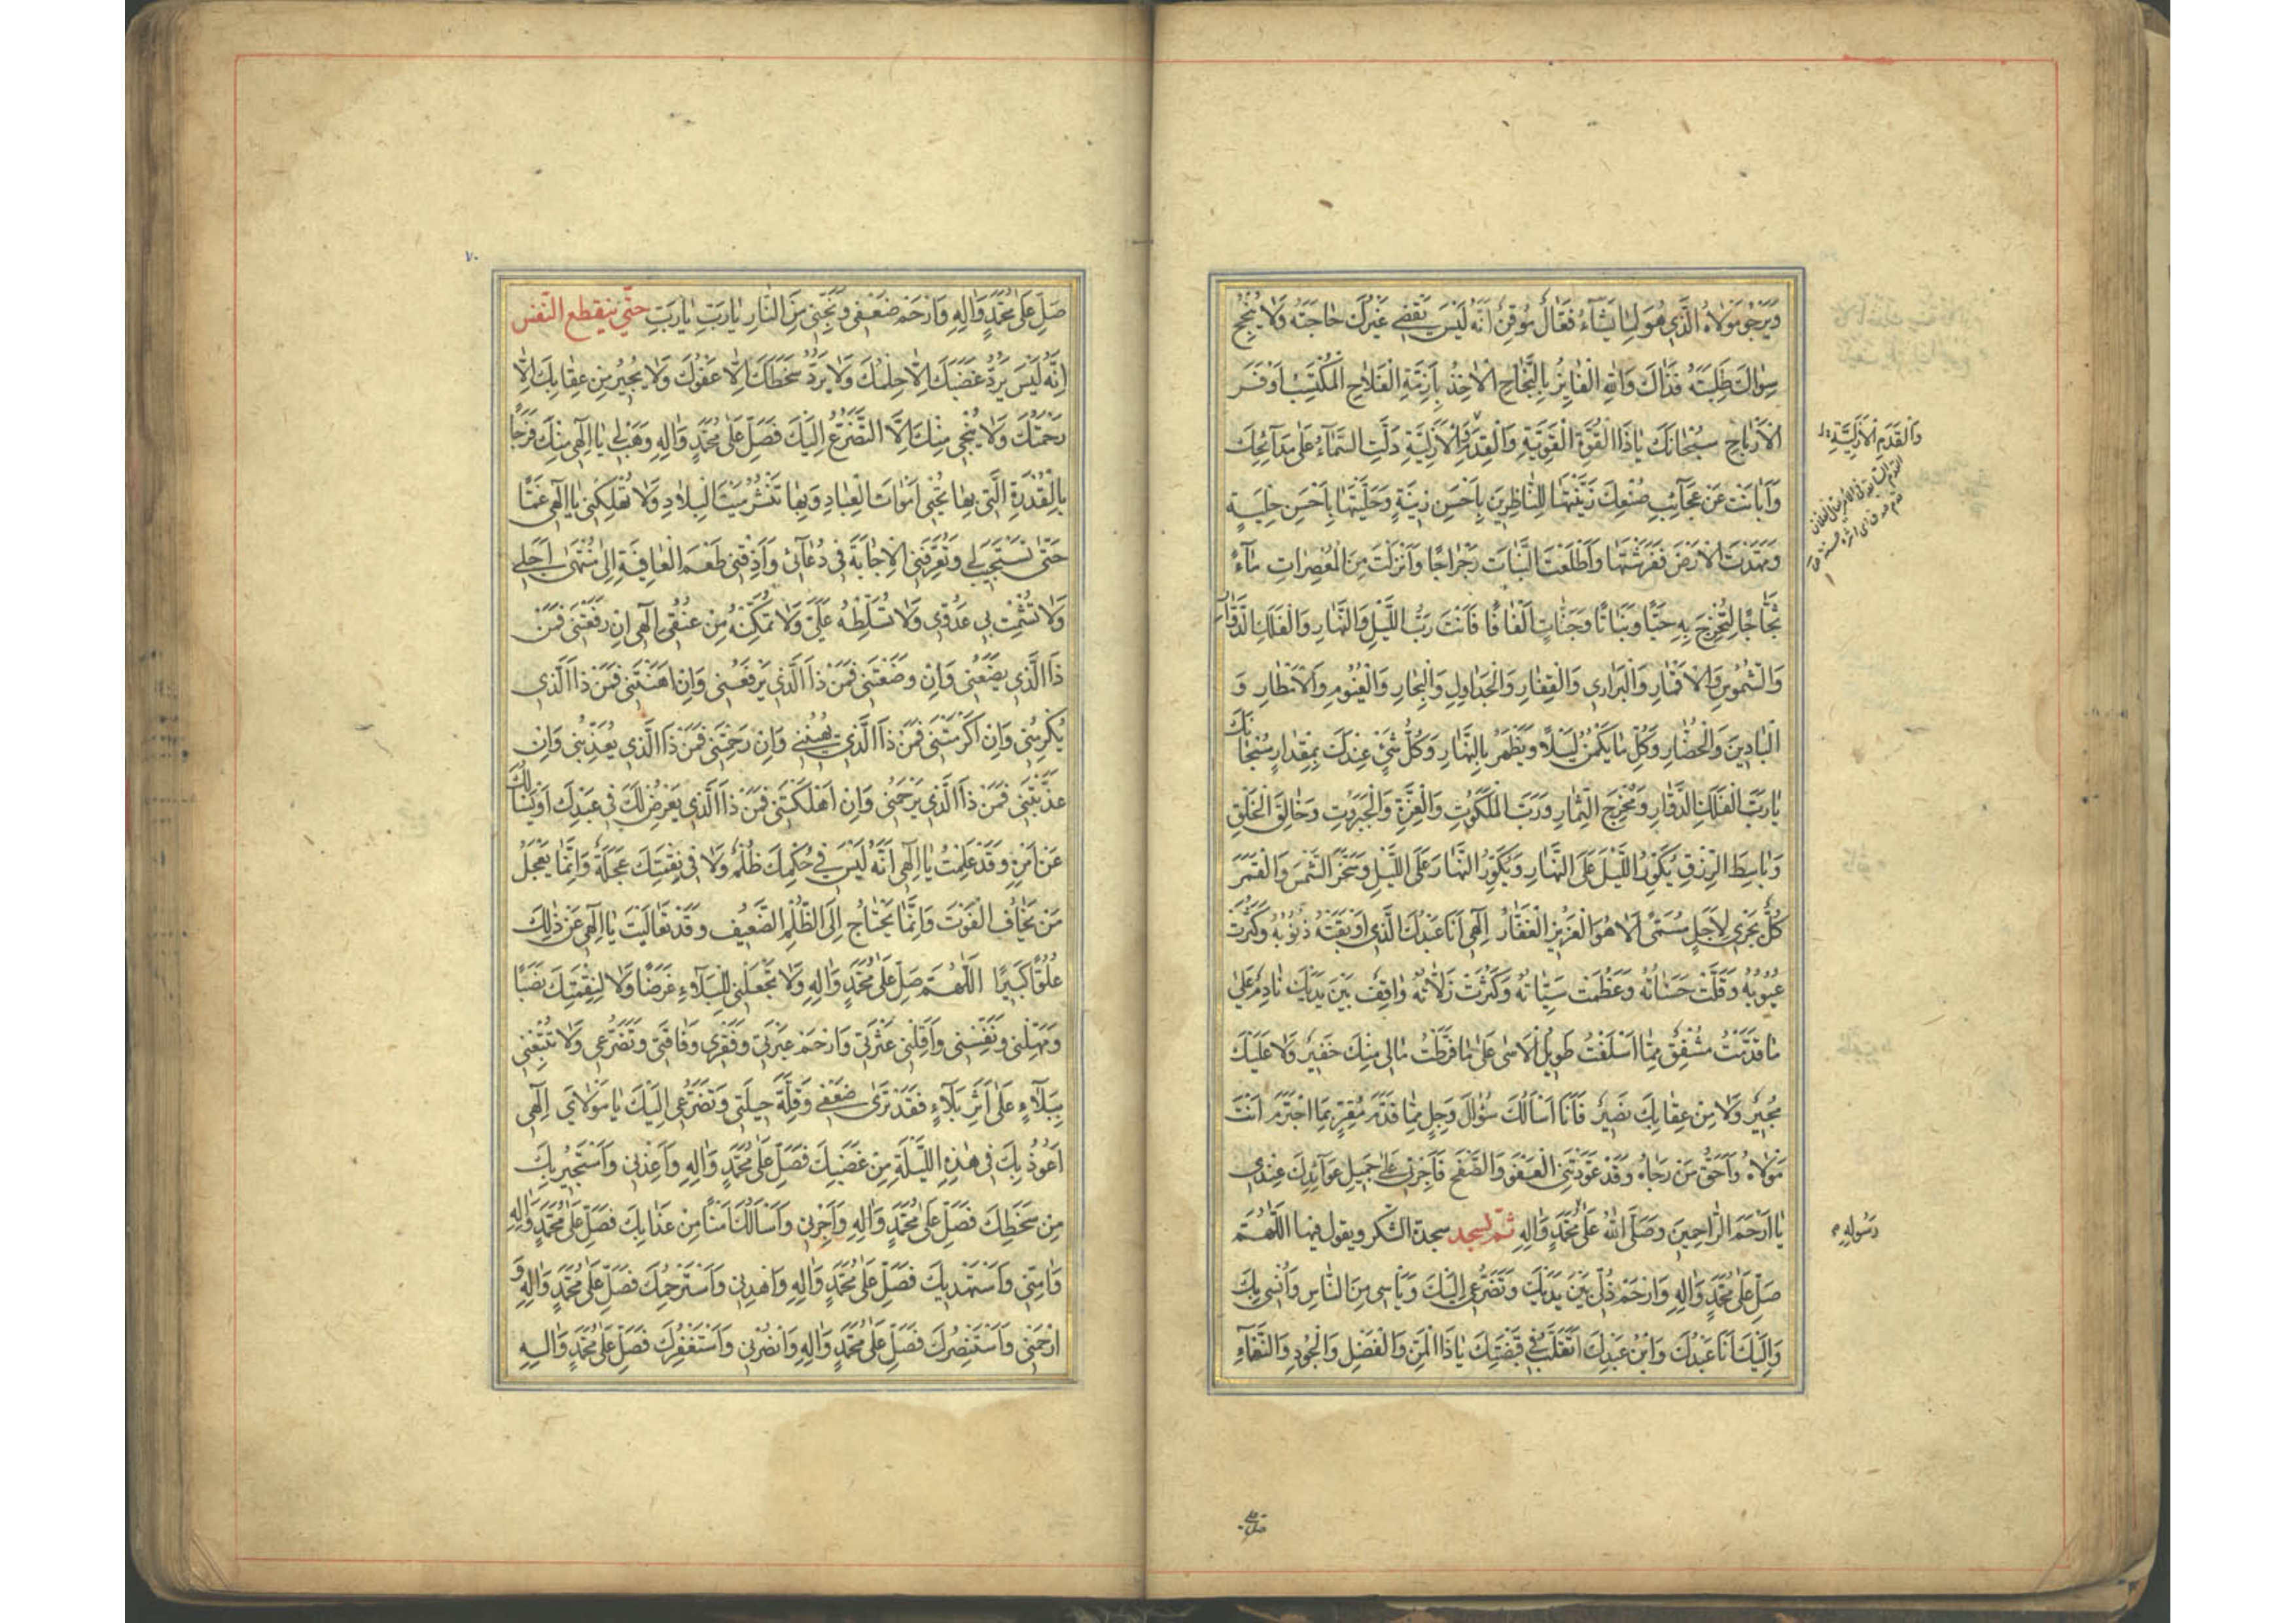 وَيَرْجُو مَوْلَاهُ الَّذِي هُوَ لِمَا يَشَاءُ فَعَّالٌ مُوقِنٌ أَنَّهُ لَيْسَ يَقْضِي غَيْرُكَ حَاجَتَهُ وَلَا يُنْجِحُ
سِوَاكَ طَلِبَتَهُ فَذَاكَ وَاللهِ الْفَايِزُ بِالنَّجَاحِ الْآخِذُ بِأَزِمَّةِ الْفَلَاحِ الْمُكْتَسِبُ أَوْفَرَ
الْأَرْبَاحِ سُبْحَانَكَ يَا ذَا الْقُوَّةِ الْقَوِيَّةِ وَالْقِدَمِ الْأَزَلِيَّةِ دَلَّتِ السَّمَاءُ عَلَى مَدَائِحِكَ
وَالْقِدَمِ الْأَزَلِيَّةِ
وَأَبَانَتْ عَنْ عَجَائِبِ صُنْعِكَ زَيَّنْتَهَا لِلنَّاظِرِينَ بِأَحْسَنِ زِينَةٍ وَحَلَّيْتَهَا بِأَحْسَنِ حِلْيَةٍ
وَمَهَّدْتَ الْأَرْضَ فَفَرَشْتَهَا وَأَطْلَعْتَ النَّبَاتَ رَجْرَاجًا وَأَنْزَلْتَ مِنَ الْمُعْصِرَاتِ مَاءً
ثَجَّاجًا لِتُخْرِجَ بِهِ حَبًّا وَنَبَاتًا وَجَنَّاتٍ أَلْفَافًا فَأَنْتَ رَبُّ اللَّيْلِ وَالنَّهَارِ وَالْفَلَكِ الدَّوَّارِ
وَالشُّمُوسِ وَالْأَقْمَارِ وَالْبَرَارِي وَالْقِفَارِ وَالْجَدَاوِلِ وَالْبِحَارِ وَالْغُيُومِ وَالْأَمْطَارِ وَ
الْبَادِينَ وَالْحُضَّارِ وَكُلِّ مَا يَكْمُنُ لَيْلًا وَيَظْهَرُ بِالنَّهَارِ وَكُلُّ شَيْءٍ عِنْدَكَ بِمِقْدَارٍ سُبْحَانَكَ
يَا رَبَّ الْفَلَكِ الدَّوَّارِ وَمُخْرِجَ الثِّمَارِ وَرَبَّ الْمَلَكُوتِ وَالْعِزَّةِ وَالْجَبَرُوتِ وَخَالِقَ الْخَلْقِ
وَبَاسِطَ الرِّزْقِ يُكَوِّرُ اللَّيْلَ عَلَى النَّهَارِ وَيُكَوِّرُ النَّهَارَ عَلَى اللَّيْلِ وَسَخَّرَ الشَّمْسَ وَالْقَمَرَ
كُلٌّ يَجْرِي لِأَجَلٍ مُسَمًّى أَلَا هُوَ الْعَزِيزُ الْغَفَّارُ إِلٰهِي أَنَا عَبْدُكَ الَّذِي أَوْبَقَتْهُ ذُنُوبُهُ وَكَثُرَتْ
عُيُوبُهُ وَقَلَّتْ حَسَنَاتُهُ وَعَظُمَتْ سَيِّئَاتُهُ وَكَثُرَتْ زَلَّاتُهُ وَاقِفٌ بَيْنَ يَدَيْكَ نَادِمٌ عَلَى
مَا قَدَّمْتُ مُشْفِقٌ مِمَّا أَسْلَفْتُ طَوِيلُ الْأَسَى عَلَى مَا فَرَّطْتُ مَالِي مِنْكَ خَفِيرٌ وَلَا عَلَيْكَ
مُجِيرٌ وَلَا مِنْ عِقَابِكَ نَصِيرٌ فَأَنَا أَسْأَلُكَ سُؤَالَ وَجِلٍ مِمَّا قَدَّمَ مُقِرٍّ بِمَا اجْتَرَمَ أَنْتَ
مَوْلَاهُ وَأَحَقُّ مَنْ رَجَاهُ وَقَدْ عَوَّدْتَنِي الْعَفْوَ وَالصَّفْحَ فَأَجِرْنِي عَلَى جَمِيلِ عَوَائِدِكَ عِنْدِي
يَا أَرْحَمَ الرَّاحِمِينَ وَصَلَّى اللهُ عَلَى مُحَمَّدٍ وَآلِهِ ثم تسجد سجدة الشكر ويقول فيها اللَّهُمَّ
رَسُولِهِ
صَلِّ عَلَى مُحَمَّدٍ وَآلِهِ وَارْحَمْ ذُلِّي بَيْنَ يَدَيْكَ وَتَضَرُّعِي إِلَيْكَ وَيَأْسِي مِنَ النَّاسِ وَأُنْسِي بِكَ
وَإِلَيْكَ أَنَا عَبْدُكَ وَابْنُ عَبْدِكَ أَتَقَلَّبُ فِي قَبْضَتِكَ يَا ذَا الْمَنِّ وَالْفَضْلِ وَالْجُودِ وَالنَّعْمَاءِ
صل على
٧٠
صَلِّ عَلَى مُحَمَّدٍ وَآلِهِ وَارْحَمْ ضَعْفِي وَنَجِّنِي مِنَ النَّارِ يَا رَبِّ يَا رَبِّ يَا رَبِّ حتّى ينقطع النّفس
إِنَّهُ لَيْسَ يَرُدُّ غَضَبَكَ إِلَّا حِلْمُكَ وَلَا يَرُدُّ سَخَطَكَ إِلَّا عَفْوُكَ وَلَا يُجِيرُ مِنْ عِقَابِكَ إِلَّا
رَحْمَتُكَ وَلَا يُنْجِي مِنْكَ إِلَّا التَّضَرُّعُ إِلَيْكَ فَصَلِّ عَلَى مُحَمَّدٍ وَآلِهِ وَهَبْ لِي يَا إِلٰهِي مِنْكَ فَرَجًا
بِالْقُدْرَةِ الَّتِي بِهَا تُحْيِي أَمْوَاتَ الْعِبَادِ وَبِهَا تَنْشُرُ مَيْتَ الْبِلَادِ وَلَا تُهْلِكْنِي يَا إِلٰهِي غَمًّا
حَتَّى تَسْتَجِيبَ لِي وَتُعَرِّفَنِي الْإِجَابَةَ فِي دُعَائِي وَأَذِقْنِي طَعْمَ الْعَافِيَةِ إِلَى مُنْتَهَى أَجَلِي
وَلَا تُشْمِتْ بِي عَدُوِّي وَلَا تُسَلِّطْهُ عَلَيَّ وَلَا تُمَكِّنْهُ مِنْ عُنُقِي إِلٰهِي إِنْ رَفَعْتَنِي فَمَنْ
ذَا الَّذِي يَضَعُنِي وَإِنْ وَضَعْتَنِي فَمَنْ ذَا الَّذِي يَرْفَعُنِي وَإِنْ أَهَنْتَنِي فَمَنْ ذَا الَّذِي
يُكْرِمُنِي وَإِنْ أَكْرَمْتَنِي فَمَنْ ذَا الَّذِي يُهِينُنِي وَإِنْ رَحِمْتَنِي فَمَنْ ذَا الَّذِي يُعَذِّبُنِي وَإِنْ
عَذَّبْتَنِي فَمَنْ ذَا الَّذِي يَرْحَمُنِي وَإِنْ أَهْلَكْتَنِي فَمَنْ ذَا الَّذِي يَعْرِضُ لَكَ فِي عَبْدِكَ أَوْ يَسْأَلُكَ
عَنْ أَمْرِهِ وَقَدْ عَلِمْتُ يَا إِلٰهِي أَنَّهُ لَيْسَ فِي حُكْمِكَ ظُلْمٌ وَلَا فِي نِقْمَتِكَ عَجَلَةٌ وَإِنَّمَا يَعْجَلُ
مَنْ يَخَافُ الْفَوْتَ وَإِنَّمَا يَحْتَاجُ إِلَى الظُّلْمِ الضَّعِيفُ وَقَدْ تَعَالَيْتَ يَا إِلٰهِي عَنْ ذٰلِكَ
عُلُوًّا كَبِيرًا اللَّهُمَّ صَلِّ عَلَى مُحَمَّدٍ وَآلِهِ وَلَا تَجْعَلْنِي لِلْبَلَاءِ غَرَضًا وَلَا لِنِقْمَتِكَ نَصَبًا
وَمَهِّلْنِي وَنَفِّسْنِي وَأَقِلْنِي عَثْرَتِي وَارْحَمْ عَبْرَتِي وَفَقْرِي وَفَاقَتِي وَتَضَرُّعِي وَلَا تُتْبِعْنِي
بِبَلَاءٍ عَلَى أَثَرِ بَلَاءٍ فَقَدْ تَرَى ضَعْفِي وَقِلَّةَ حِيلَتِي وَتَضَرُّعِي إِلَيْكَ يَا مَوْلَايَ إِلٰهِي
أَعُوذُ بِكَ فِي هٰذِهِ اللَّيْلَةِ مِنْ غَضَبِكَ فَصَلِّ عَلَى مُحَمَّدٍ وَآلِهِ وَأَعِذْنِي وَأَسْتَجِيرُ بِكَ
مِنْ سَخَطِكَ فَصَلِّ عَلَى مُحَمَّدٍ وَآلِهِ وَأَجِرْنِي وَأَسْأَلُكَ أَمْنًا مِنْ عَذَابِكَ فَصَلِّ عَلَى مُحَمَّدٍ وَآلِهِ
وَآمِنِّي وَأَسْتَهْدِيكَ فَصَلِّ عَلَى مُحَمَّدٍ وَآلِهِ وَاهْدِنِي وَأَسْتَرْحِمُكَ فَصَلِّ عَلَى مُحَمَّدٍ وَآلِهِ وَ
ارْحَمْنِي وَأَسْتَنْصِرُكَ فَصَلِّ عَلَى مُحَمَّدٍ وَآلِهِ وَانْصُرْنِي وَأَسْتَغْفِرُكَ فَصَلِّ عَلَى مُحَمَّدٍ وَآلِهِ